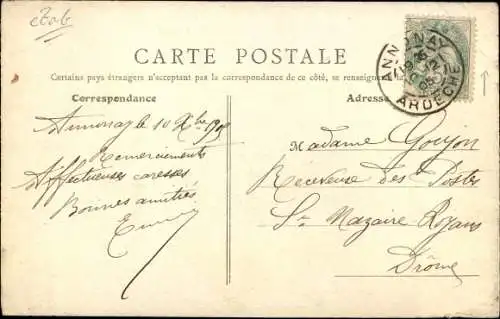 CARTE POSTALE
Certains pays étrangers n'acceptant pas la correspondance de ce côté, se renseigner
Correspondance
Adresse
Annonay le 10 Xbre 1905
Remerciements
Affectueuses caresses
Bonnes amitiés
Madame Goujon
Receveuse des Postes
St Nazaire Royans
Drôme
ANNONAY
ARDECHE